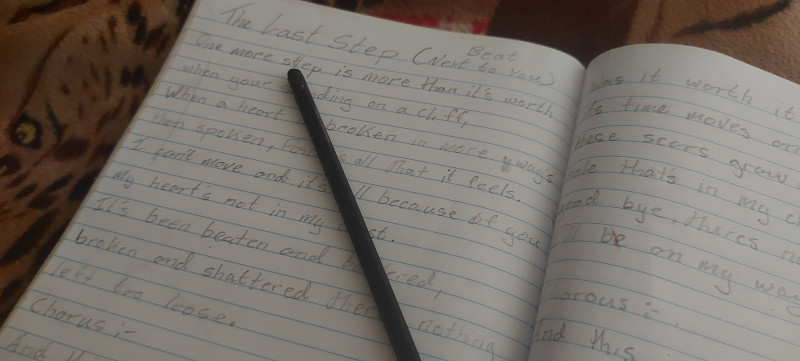 The Last Step (Next to you)
Beat
One more step is more than it's worth
when your ding on a cliff,
When a heart broken in more ways
then spoken, all that it feels.
I can't move and it's ll because of you
My heart's not in my st.
It's been beaten and b red,
broken and shattered ther nothing
left to loose.
Chorus:-
And
was it worth it
s time moves on
hese scers grow
ole that's in my c
ood bye, theres n
ll be on my way
horous:-
And this